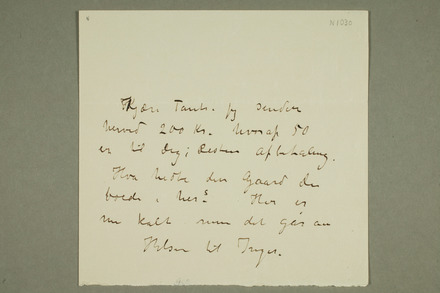 Kjære Tante. Jeg sender
herved 200 Kr. hvoraf 50
er til Dig; Resten Afbetaling.
Hva hedte den Gaard Du
boede i her? Her er
nu kaldt men det går an
Hilsen til Inger.